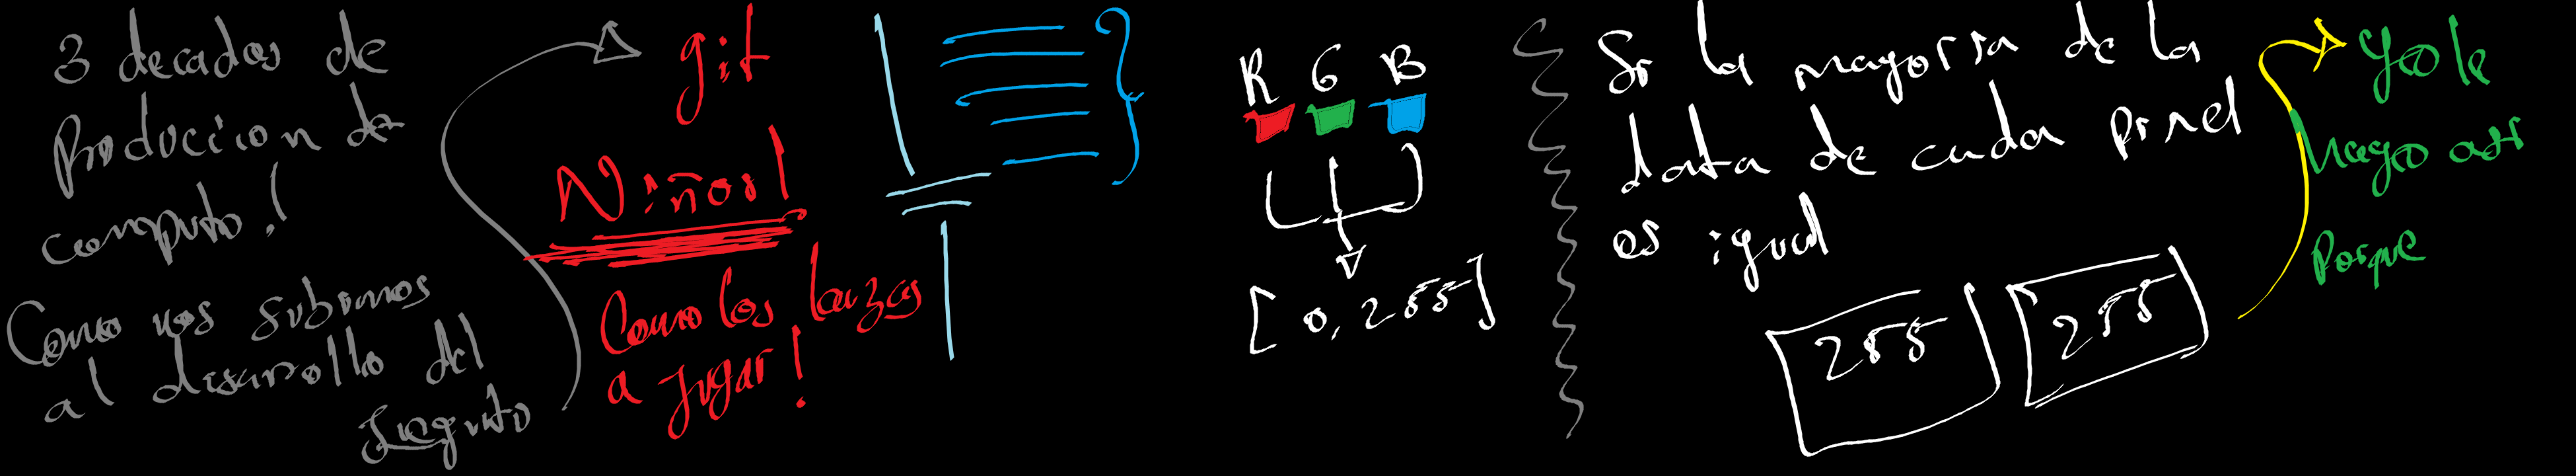 3 decadas de
Produccion de
computo!
Como nos subimos
al desarrollo del
Jueguito
git
Niños!
Como los lanzas
a jugar!
R G B
[0, 255]
Si la mayoria de la
data de cada pixel
es igual
255 255
Yo le
hago asi
Porque